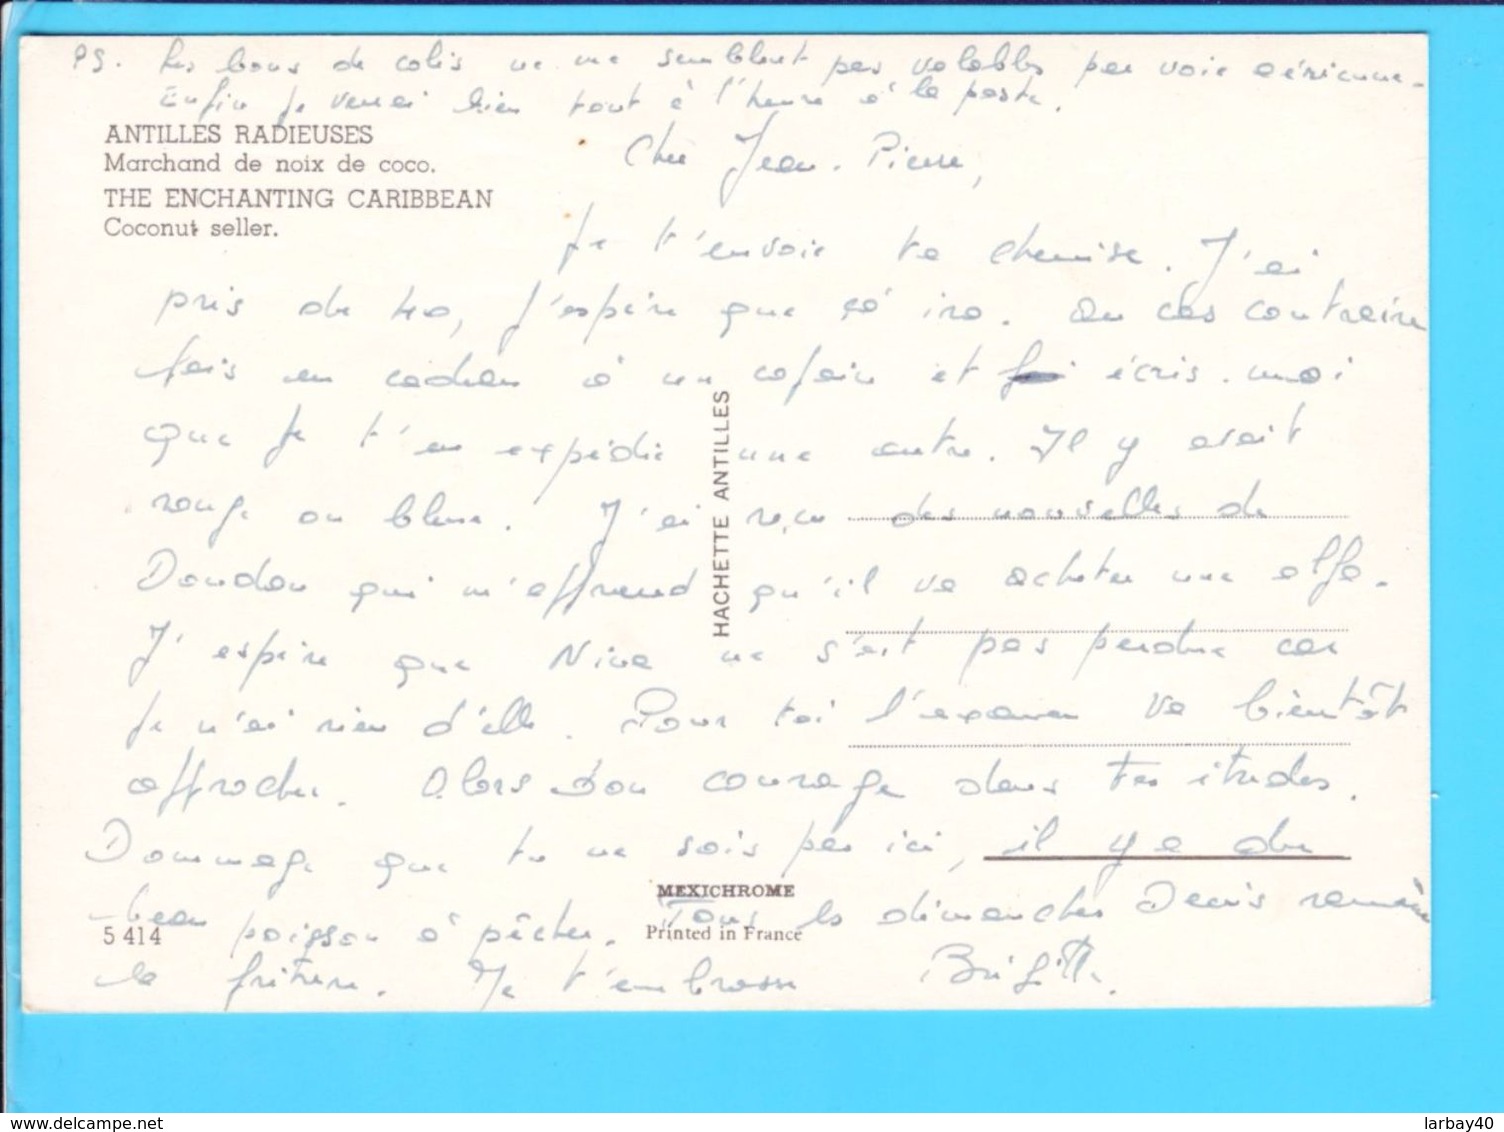 PS. Les bons de colis ne me semblent pas valables par voie aérienne.
Enfin je verrai bien tout à l'heure à la poste.
ANTILLES RADIEUSES
Marchand de noix de coco.
THE ENCHANTING CARIBBEAN
Coconut seller.
Cher Jean-Pierre,
Je t'envoie ta chemise. J'ai
pris du 40, j'espère que ça ira. Au cas contraire
fais un cadeau à un copain et écris-moi
que je t'en expédie une autre. Il y avait
rouge ou bleue. J'ai reçu des nouvelles de
Doudou qui m'apprend qu'il va acheter une alfa.
J'espère que Nina ne s'est pas perdue car
je n'ai rien d'elle. Pour toi l'examen va bientôt
approcher. Alors bon courage dans tes études.
Dommage que tu ne sois pas ici, il y a du
beau poisson à pêcher. Tous les dimanches Denis ramène
la friture. Je t'embrasse Brigitte.
HACHETTE ANTILLES
MEXICHROME
Printed in France
5 414
www.delcampe.net
larbay40